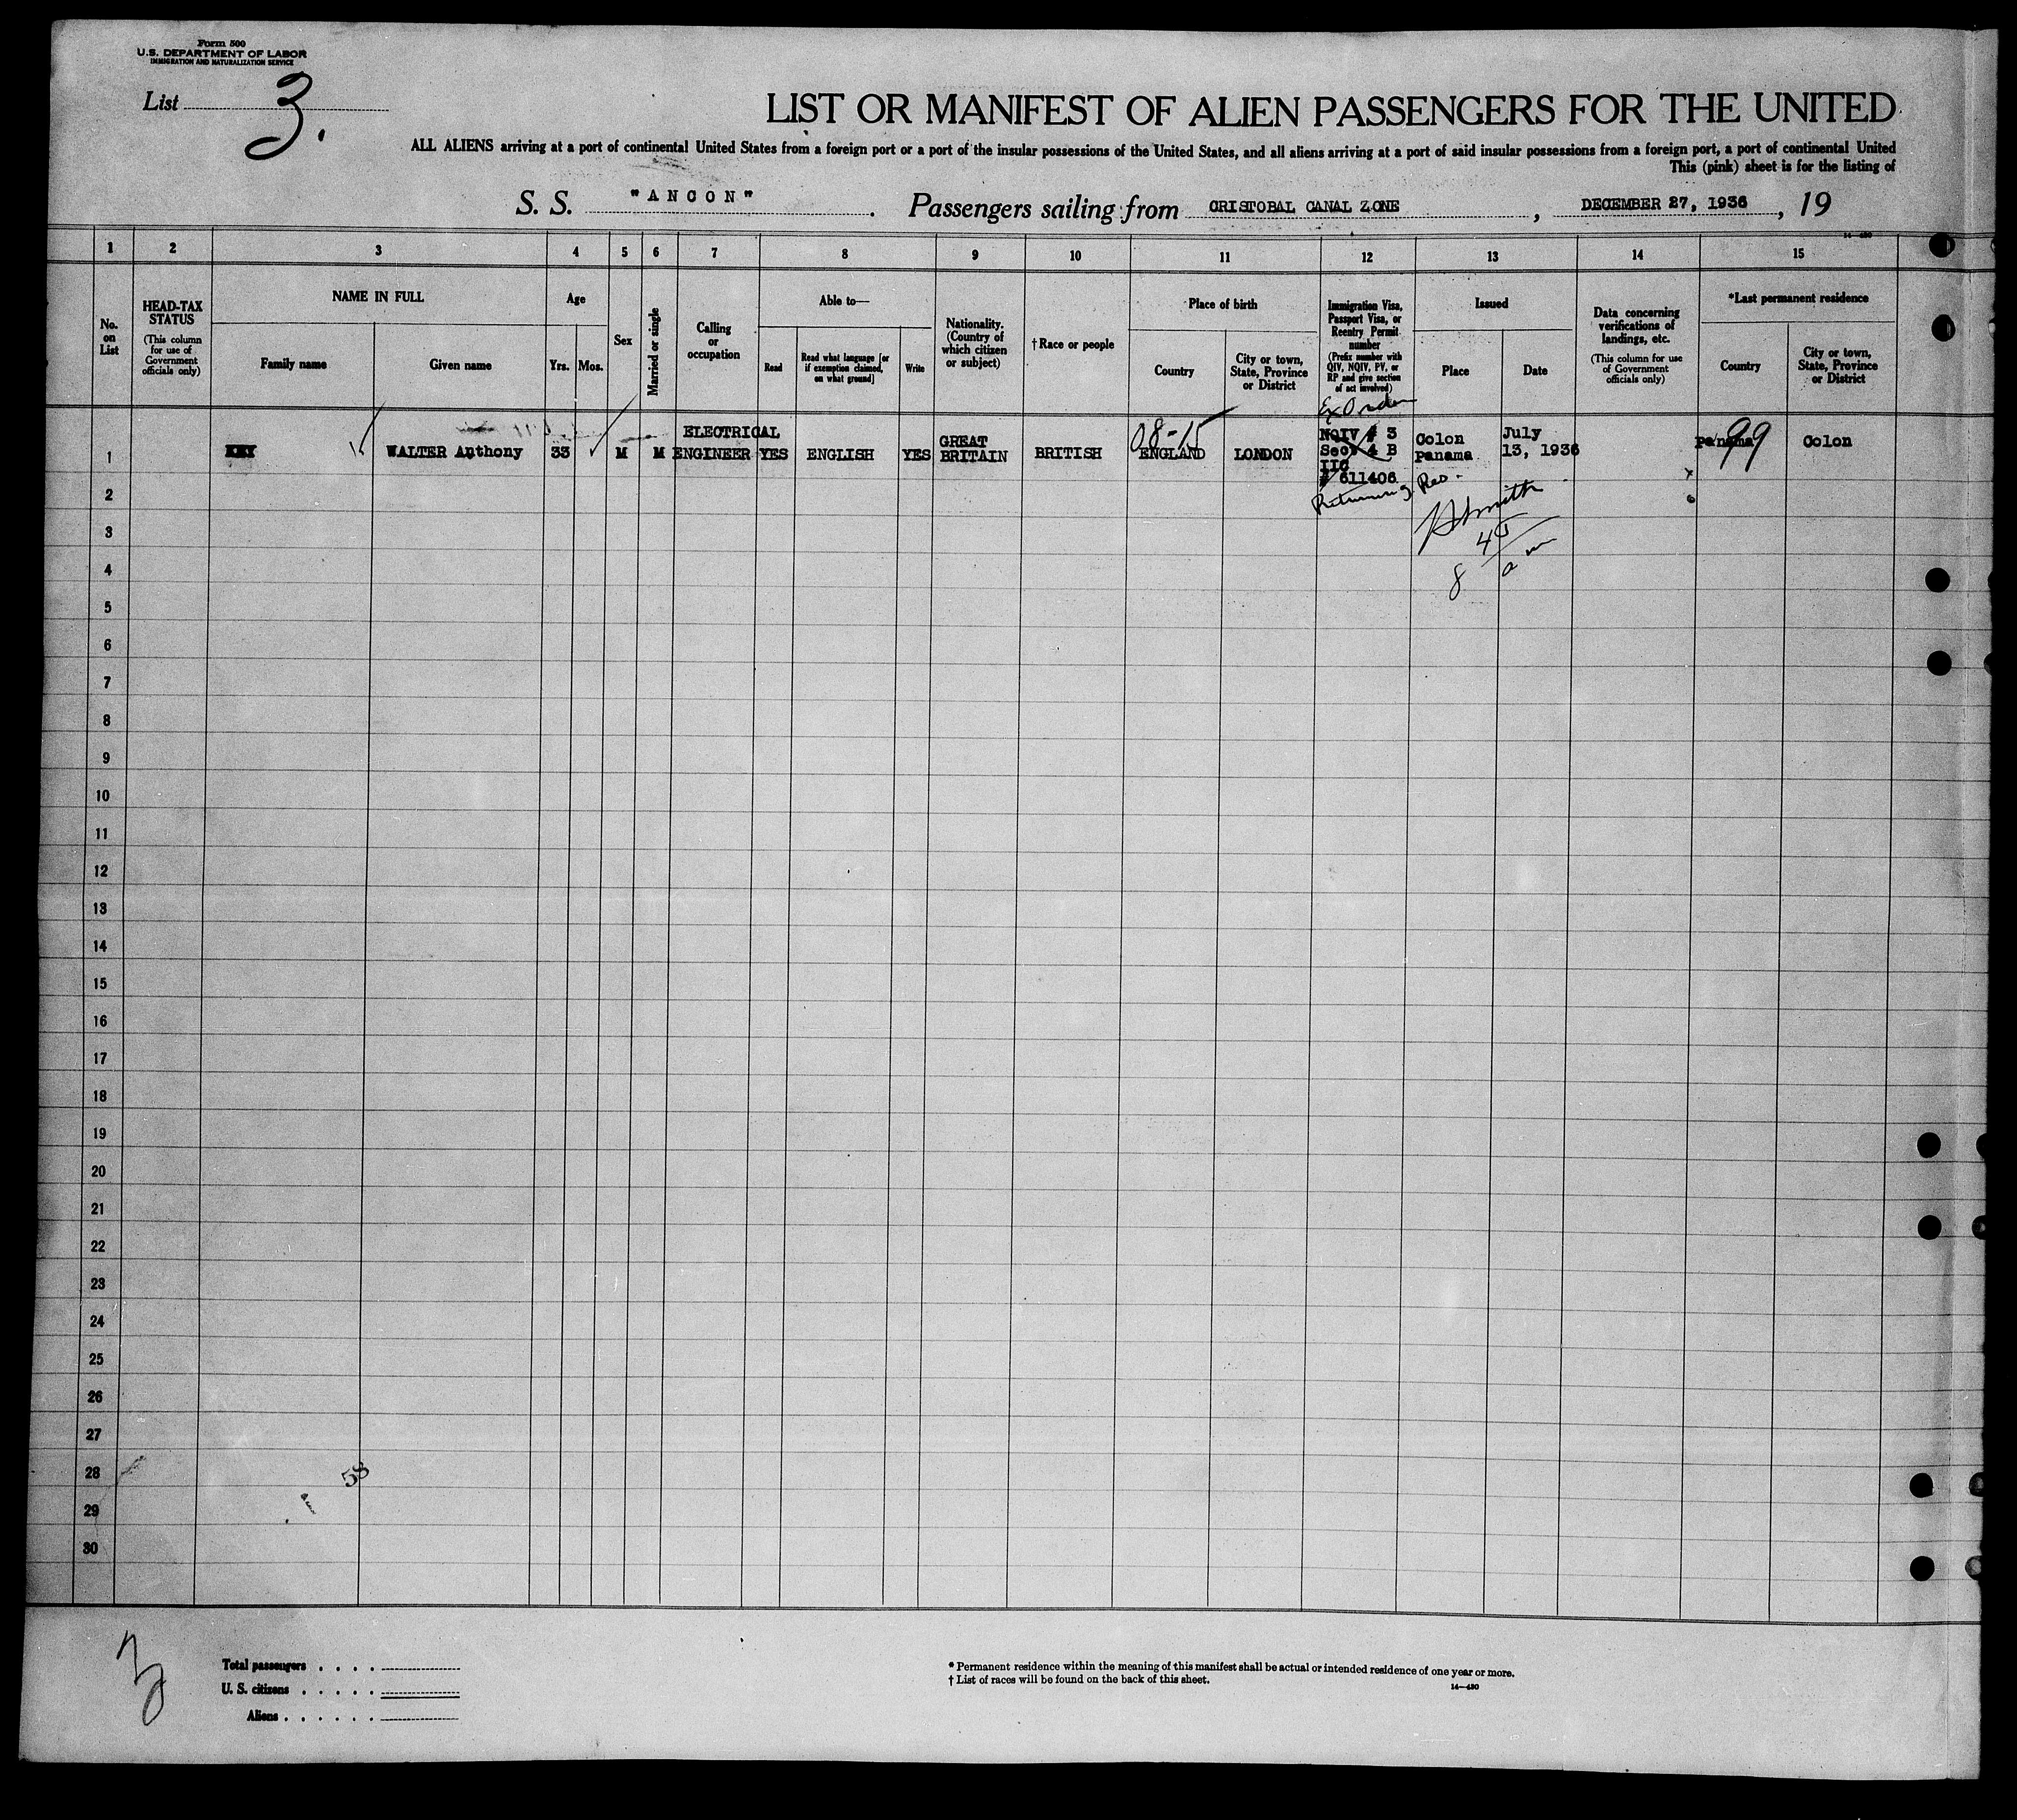 Form 500
U.S. DEPARTMENT OF LABOR
IMMIGRATION AND NATURALIZATION SERVICE
List 3.
LIST OR MANIFEST OF ALIEN PASSENGERS FOR THE UNITED
ALL ALIENS arriving at a port of continental United States from a foreign port or a port of the insular possessions of the United States, and all aliens arriving at a port of said insular possessions from a foreign port, a port of continental United
This (pink) sheet is for the listing of
S. S. "ANCON". Passengers sailing from CRISTOBAL CANAL ZONE, DECEMBER 27, 1936, 19
14—430
1 2 3 4 5 6 7 8 9 10 11 12 13 14 15
No. on List
HEAD-TAX STATUS
(This column for use of Government officials only)
NAME IN FULL
Family name
Given name
Age
Yrs.
Mos.
Sex
Married or single
Calling or occupation
Able to—
Read
Read what language [or if exemption claimed, on what ground]
Write
Nationality. (Country of which citizen or subject)
†Race or people
Place of birth
Country
City or town, State, Province or District
Immigration Visa, Passport Visa, or Reentry Permit number
(Prefix number with QIV, NQIV, PV, or RP and give section of act involved)
Issued
Place
Date
Data concerning verifications of landings, etc.
(This column for use of Government officials only)
*Last permanent residence
Country
City or town, State, Province or District
Ex Order
1 KEY WALTER Anthony 33 M M ELECTRICAL ENGINEER YES ENGLISH YES GREAT BRITAIN BRITISH 08-15 ENGLAND LONDON NQIV # 3 Sec. 4 B IIC # 611406 Colon Panama July 13, 1936 Panama 99 Colon
Returning Res.
2
HSmith
3
45
4
8 am
5
6
7
8
9
10
11
12
13
14
15
16
17
18
19
20
21
22
23
24
25
26
27
28
58
29
30
3
Total passengers
U. S. citizens
Aliens
* Permanent residence within the meaning of this manifest shall be actual or intended residence of one year or more.
† List of races will be found on the back of this sheet.
14—430